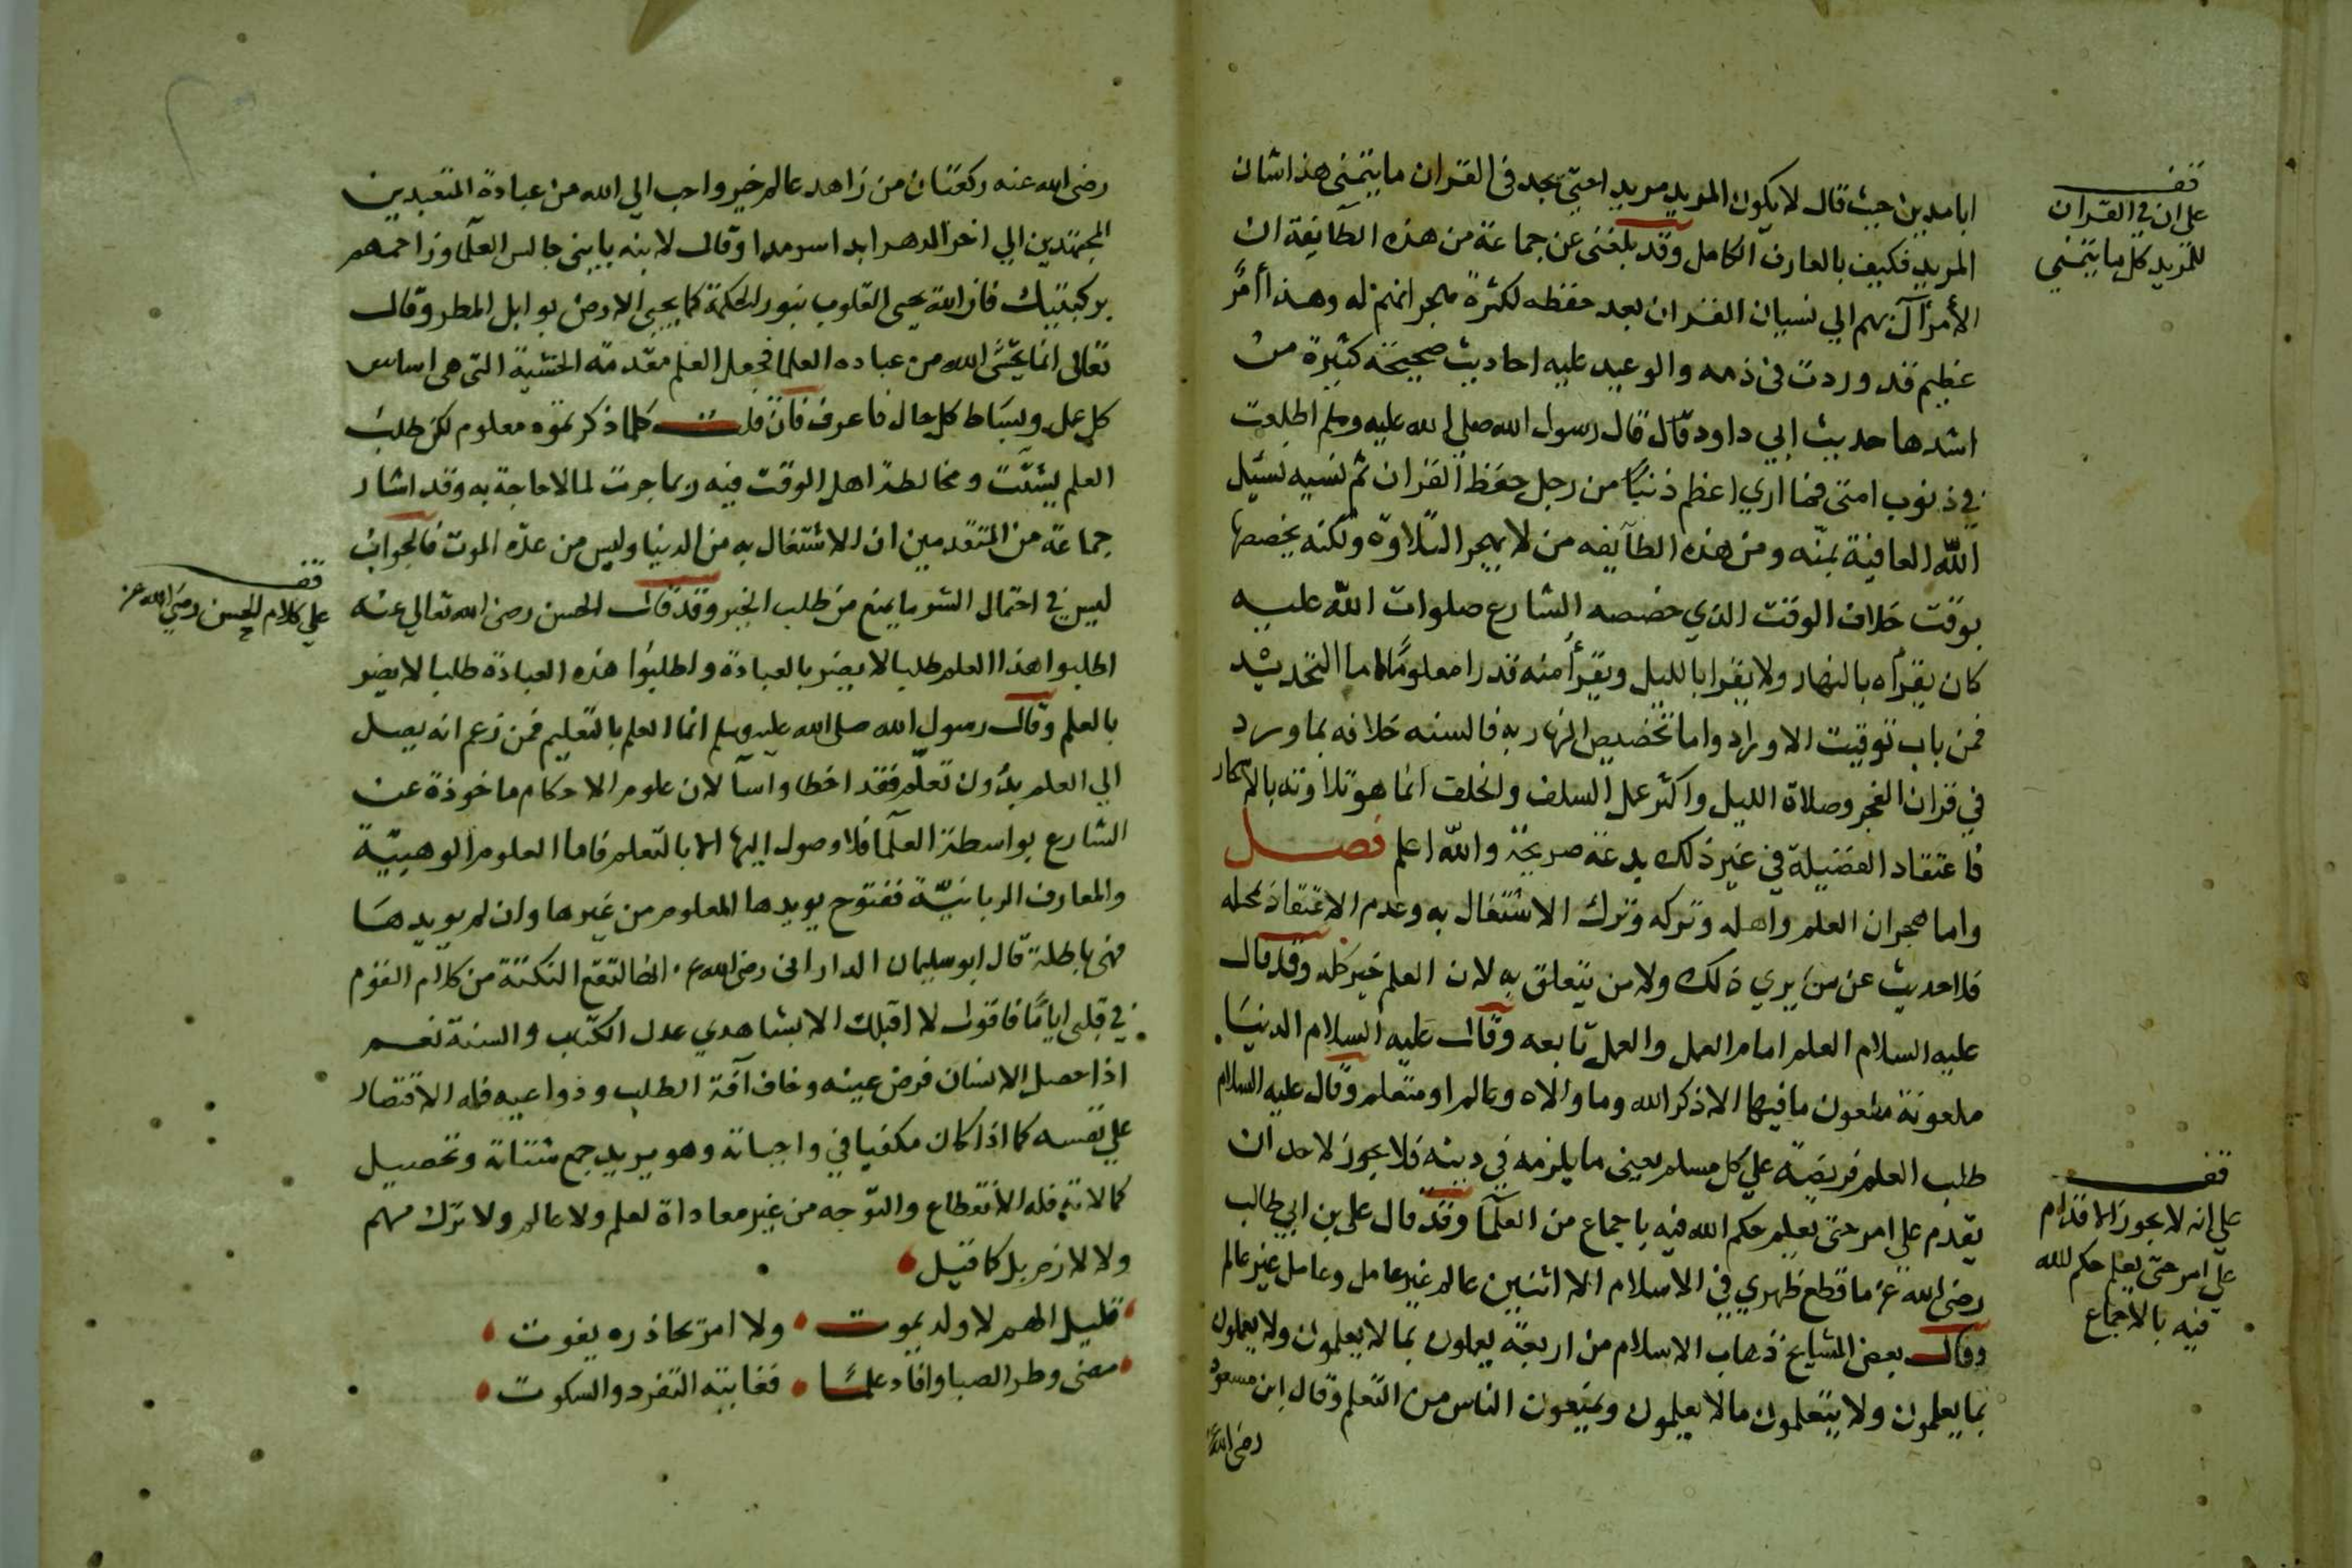 ابا مدين حيث قال لا يكون المريد مريدا حتى يجد في القران ما يتمنى هذا شان
المريد فكيف بالعارف الكامل وقد بلغني عن جماعة من هذه الطآيفة ان
الأمر آل بهم الي نسيان القران بعد حفظه لكثرة هجرانهم له وهذا أمرٌ
عظيم قد وردت في ذمه والوعيد عليه احاديث صحيحة كثيرة من
اشدها حديث ابي داود قال قال رسول الله صلي الله عليه وسلم اطلعت
في ذنوب امتى فما اري اعظم ذنبًا من رجل حفظ القران ثم نسيه نسئل
اللّه العافية بمنّه ومن هذه الطآيفه من لا يهجر التلاوة ولكنه يخصصها
بوقت خلاف الوقت الذي خصصه الشارع صلوات اللّه عليه
كان يقرأه بالنهار ولا يقرا بالليل ويقرأ منه قدرا معلومًا اما التحديد
فمن باب توقيت الاوراد واما تخصيص النهار به فالسنه خلافه بما ورد
في قران الفجر وصلاة الليل واكثر عمل السلف والخلف انما هو تلاوته بالاسحار
فاعتقاد الفضيلة في غير ذلك بدعة صريحة واللّه اعلم فصل
واما هجران العلم واهله وتركه وترك الاشتغال به وعدم الاعتقاد بمحله
فلا حديث عن من يري ذلك ولا من يتعلق به لان العلم خير كله وقد قال
عليه السلام العلم امام العمل والعمل تابعه وقال عليه السلام الدنيَا
ملعونة ملعون ما فيها الا ذكر الله وما والاه وعالم او متعلم وقال عليه السلام
طلب العلم فريضة علي كل مسلم يعني ما يلزمه في دينه فلا يجوز لاحد ان
يقدم على امر حتى يعلم حكم الله فيه باجماع من العلمآ وقد قال على بن ابي طالب
رضي الله عنه ما قطع ظهري في الاسلام الا اثنين عالم غير عامل وعامل غير عالم
وقال بعض المشايخ ذهاب الاسلام من اربعة يعملون بما لا يعلمون ولا يعملون
بما يعلمون ولا يتعلمون ما لا يعلمون ويمنعون الناس من التعلم وقال ابن مسعود
رضي الله
قف
على ان في القران
للمريد كل ما يتمني
قف
علي انه لا يجوز الاقدام
علي امر حتى يعلم حكم الله
فيه بالاجماع
رضي الله عنه ركعتان من زاهد عالم خير واحب الي الله من عبادة المتعبدين
المجتهدين الي اخر الدهر ابدا سرمدا وقال لابنه يا بني جالس العلمآ وزاحمهم
بركبتيك فان الله يحيى القلوب بنور الحكمة كما يحيى الارض بوابل المطر وقال
تعالى انما يخشى الله من عباده العلما فجعل العلم مقدمة الخشية التى هى اساس
كل عمل وبسَاط كل حال فاعرف فان قلت كلما ذكرتموه معلوم لكن طلب
العلم يشتّت ومخالطة اهل الوقت فيه ربما جرت لما لا حاجة به وقد اشار
جماعة من المتقدمين ان الاشتغال به من الدنيا وليس من عدّه الموت فالجواب
ليس في احتمال الشر ما يمنع من طلب الخير وقد قال الحسن رضى الله تعالي عنه
اطلبوا هذا العلم طلبا لا يضر بالعبادة واطلبوُا هذه العبادة طلبا لا يضر
بالعلم وقال رسول الله صلى الله عليه وسلم انما العلم بالتعليم فمن زعم انه يصل
الي العلم بدُون تعلّم فقد اخطا واسآ لان علوم الاحكام ماخوذة عن
الشارع بواسطة العلمآ فلا وصول اليها الا بالتعلم فاما العلوم الوهبيّة
والمعارف الربانيّة ففتوح يويدها المعلوم من غيرها وان لم يويدهَا
فهى باطلة قال ابو سليمان الداراني رضى الله عنه انها لتقع النكتة من كلام القوم
في قلبي ايامًا فاقول لا اقبلك الا بشاهدي عدل الكتاب والسنة نعم
اذا حصل الانسان فرض عينه وخاف آفة الطلب ودواعيه فله الاقتصار
علي نفسه كما اذا كان مكفيا في واجباته وهو يريد جمع شتاته وتحصيل
كمالاته فله الانقطاع والتوّجه من غير معاداة لعلم ولا عالم ولا ترك مهم
ولا لازم بل كما قيل
قليل الهم لا ولد يموت ولا امرٌ يحاذره يفوت
مضى وطر الصبا وافاد علمًا فغايته التفرد والسكوت
قف
علي كلام الحسن رضي الله عنه